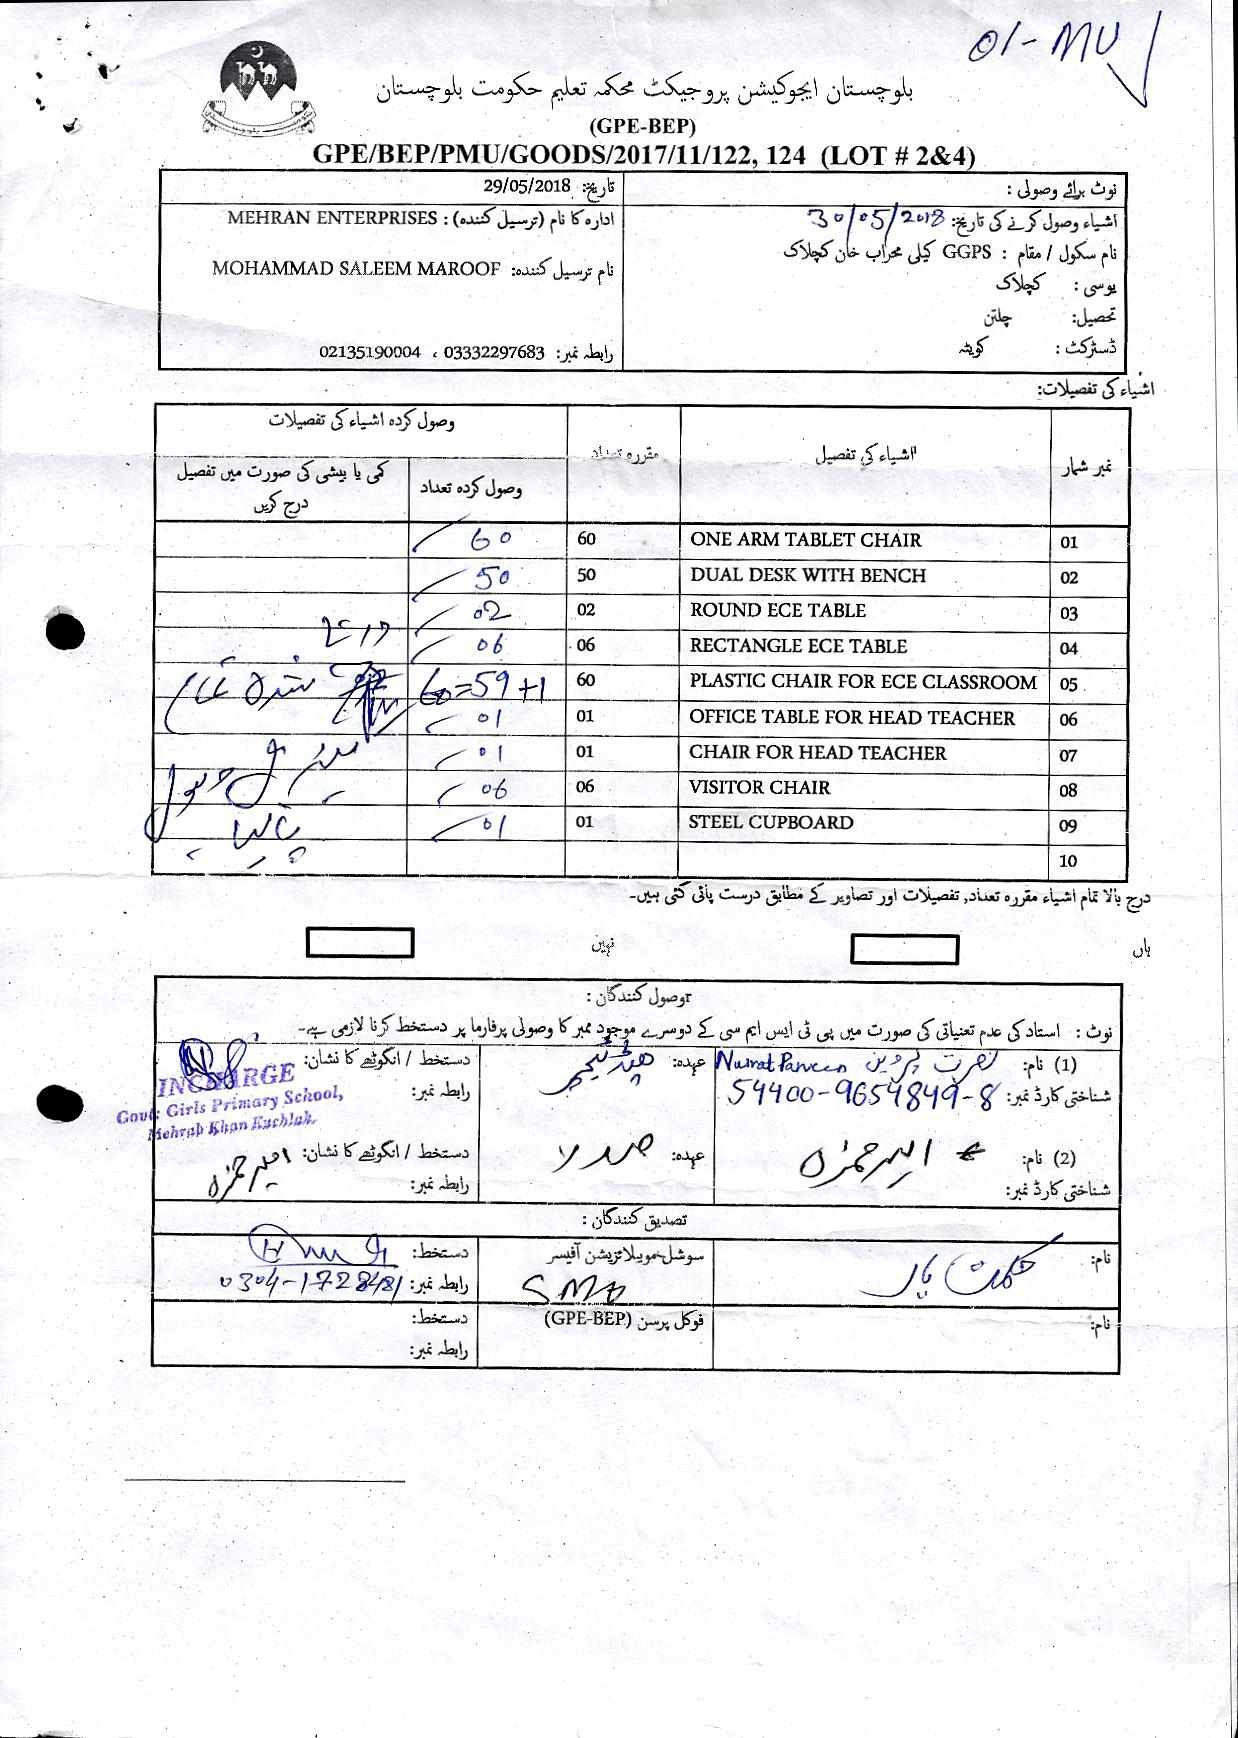 01-MU
بلوچستان ایجوکیشن پروجیکٹ محکمہ تعلیم حکومت بلوچستان
(GPE-BEP)
GPE/BEP/PMU/GOODS/2017/11/122, 124 (LOT # 2&4)
نوٹ برائے وصولی :
تاریخ: 29/05/2018
اشیاء وصول کرنے کی تاریخ: 30/05/2018
ادارہ کا نام (ترسیل کنندہ) : MEHRAN ENTERPRISES
نام سکول / مقام : GGPS کیلی محراب خان کچلاک
نام ترسیل کنندہ: MOHAMMAD SALEEM MAROOF
یوسی : کچلاک
تحصیل: چلتن
ڈسٹرکٹ : کویٹہ
رابطہ نمبر: 03332297683 ، 02135190004
اشیاء کی تفصیلات:
نمبر شمار اشیاء کی تفصیل مقررہ تعداد وصول کردہ اشیاء کی تفصیلات
وصول کردہ تعداد کمی یا بیشی کی صورت میں تفصیل درج کریں
01 ONE ARM TABLET CHAIR 60 60
02 DUAL DESK WITH BENCH 50 50
03 ROUND ECE TABLE 02 02
04 RECTANGLE ECE TABLE 06 06
05 PLASTIC CHAIR FOR ECE CLASSROOM 60 60=59+1
06 OFFICE TABLE FOR HEAD TEACHER 01 01
07 CHAIR FOR HEAD TEACHER 01 01
08 VISITOR CHAIR 06 06
09 STEEL CUPBOARD 01 01
10
درج بالا تمام اشیاء مقررہ تعداد, تفصیلات اور تصاویر کے مطابق درست پائی گئی ہیں۔
ہاں نہیں
وصول کنندگان :
نوٹ : استاد کی عدم تعیناتی کی صورت میں پی ٹی ایس ایم سی کے دوسرے موجود ممبر کا وصولی پرفارما پر دستخط کرنا لازمی ہے۔
(1) نام: نصرت پروین Nusrat Parveen عہدہ: ہیڈ ٹیچر دستخط / انگوٹھے کا نشان:
شناختی کارڈ نمبر: 54400-9654849-8 رابطہ نمبر:
INCHARGE
Govt: Girls Primary School,
Mehrab Khan Kuchlak.
(2) نام: امیر حمزہ عہدہ: صدر دستخط / انگوٹھے کا نشان: امیر حمزہ
شناختی کارڈ نمبر: رابطہ نمبر:
تصدیق کنندگان :
نام: حکمت یار سوشل موبیلائزیشن آفیسر دستخط:
SMO رابطہ نمبر: 0304-1728481
نام: فوکل پرسن (GPE-BEP) دستخط:
رابطہ نمبر: